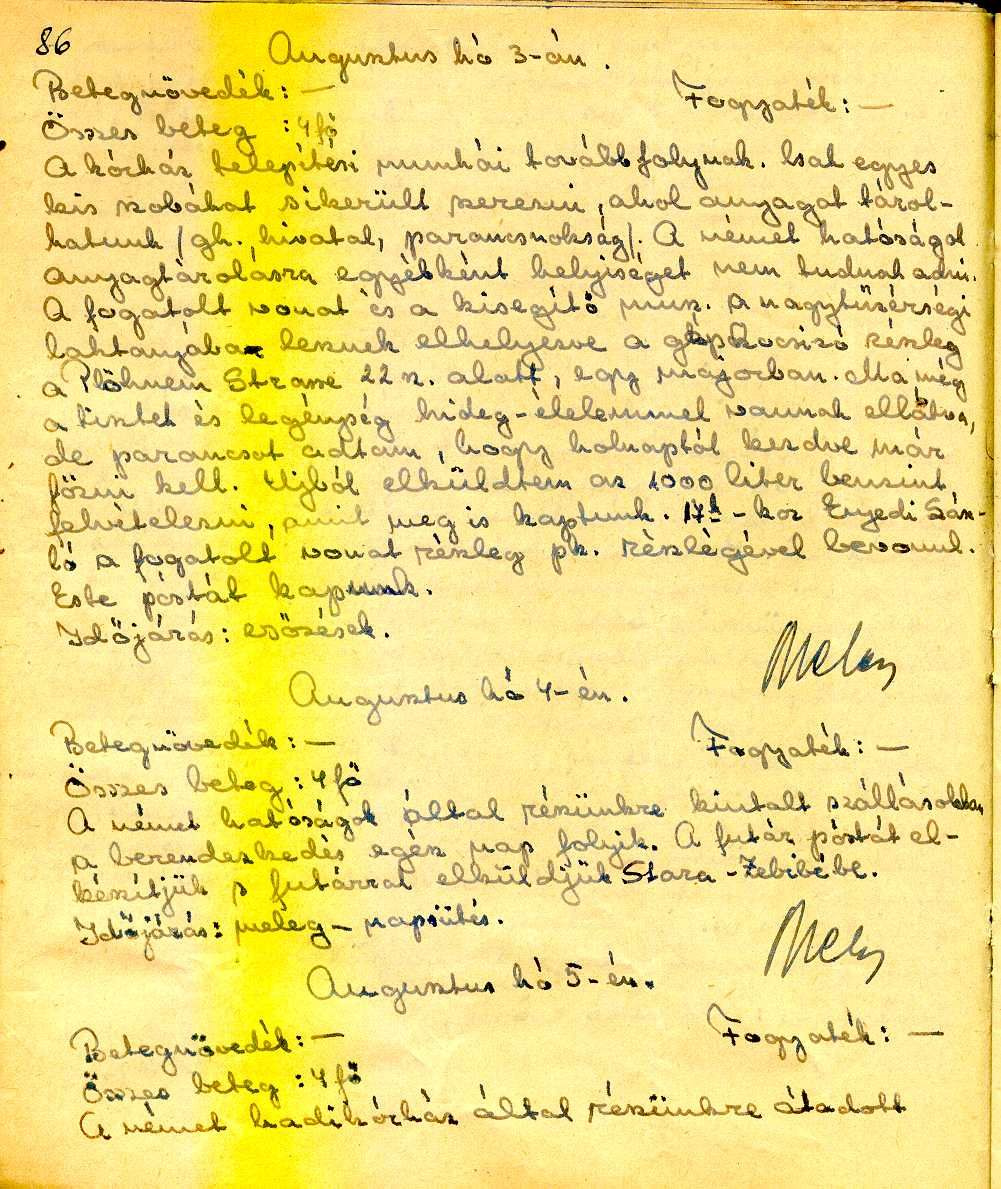 86
Augusztus hó 3-án.
Betegnövedék: — Fogyaték: —
Összes beteg : 4 fő
A kórház telepítési munkái tovább folynak. Csak egyes
kis szobákat sikerült szerezni, ahol anyagot tárol-
hatunk /gh. hivatal, parancsnokság/. A német hatóságok
anyagtárolásra egyébként helyiséget nem tudnak adni.
A fogatolt vonat és a kisegítő musz. a nagytüzérségi
laktanyában lesznek elhelyezve a gépkocsizó részleg
a Strasse 22 sz. alatt, egy majorban. Ma még
a tisztek és legénység hideg-élelemmel vannak ellátva,
de parancsot adtam, hogy holnaptól kezdve már
főzni kell. Ujból elküldtem az 1000 liter benzint
felvételezni, amit meg is kaptunk. 17h-kor Enyedi Sán-
ló a fogatolt vonat részleg pk. részlegével bevonul.
Este póstát kapunk.
Időjárás: esőzések.
Augusztus hó 4-én.
Betegnövedék: — Fogyaték: —
Összes beteg : 4 fő
A német hatóságok által részünkre kiutalt szállásokban
a berendezkedés egész nap folyik. A futár póstát el-
készítjük s futárral elküldjük Stara-Zebibébe.
Időjárás: meleg - napsütés.
Augusztus hó 5-én.
Betegnövedék: — Fogyaték: —
Összes beteg : 4 fő
A német hadikórház által részünkre átadott